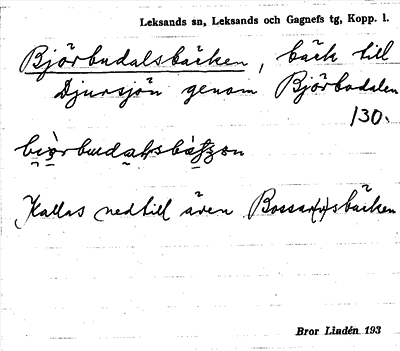 Leksands sn, Leksands och Gagnefs tg, Kopp. l.
Björbudalsbäcken, bäck till
Djursjön genom Björbodalen
130.
Kallas nedtill även Bossar(v)sbäcken
Bror Lindén 193